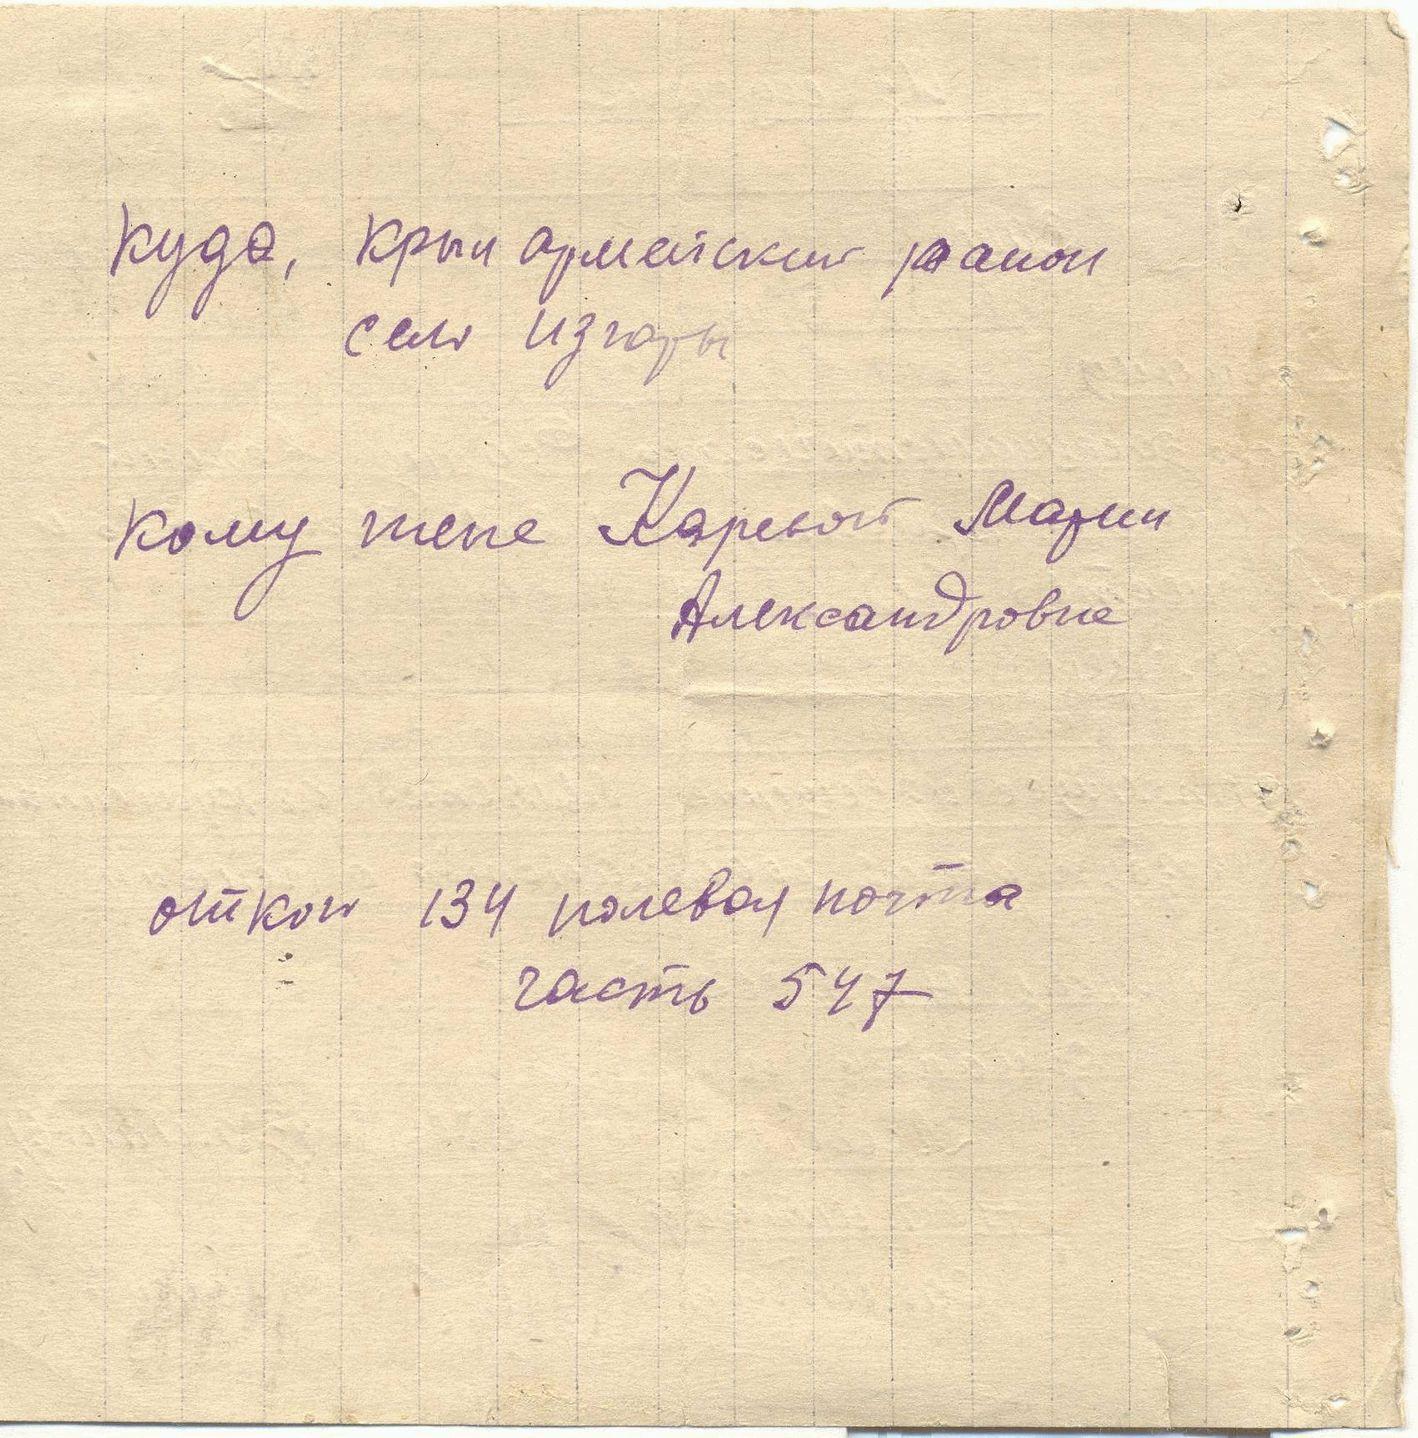 куда, Крыи армейский район
село Изгары
кому жене Каревой Марии
Александровне
откои 134 полевая почта
часть 547